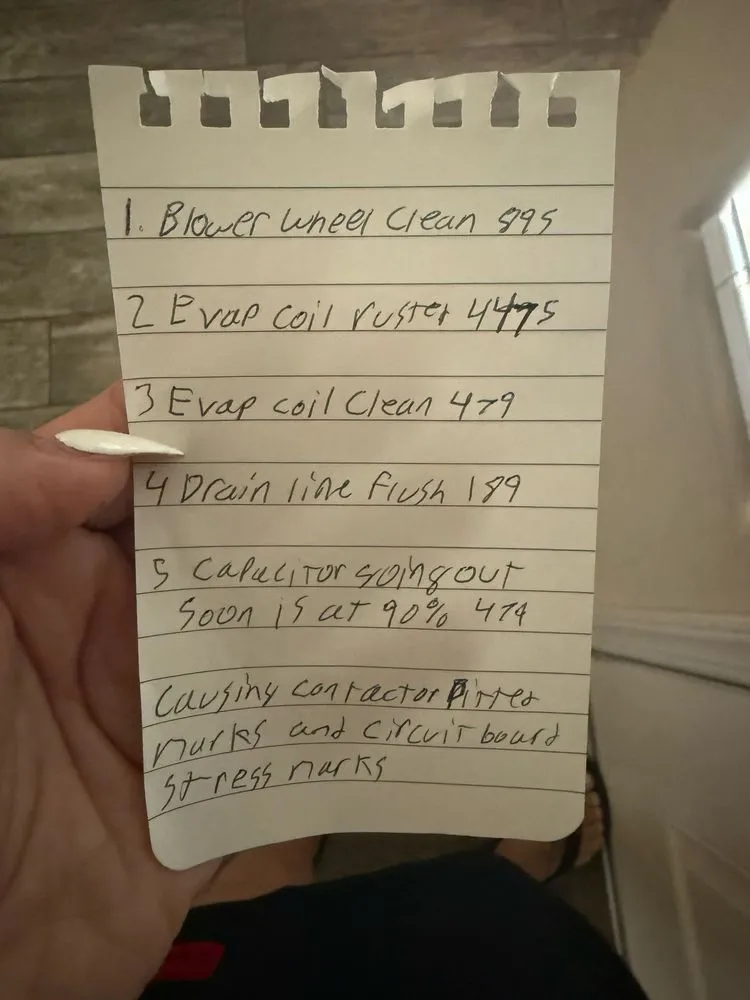 1. Blower wheel Clean 895
2 Evap coil ruster 4475
3 Evap coil Clean 479
4 Drain line flush 189
5 Capacitor going out
Soon is at 90% 474
Causing contactor Pitted
marks and circuit board
stress marks